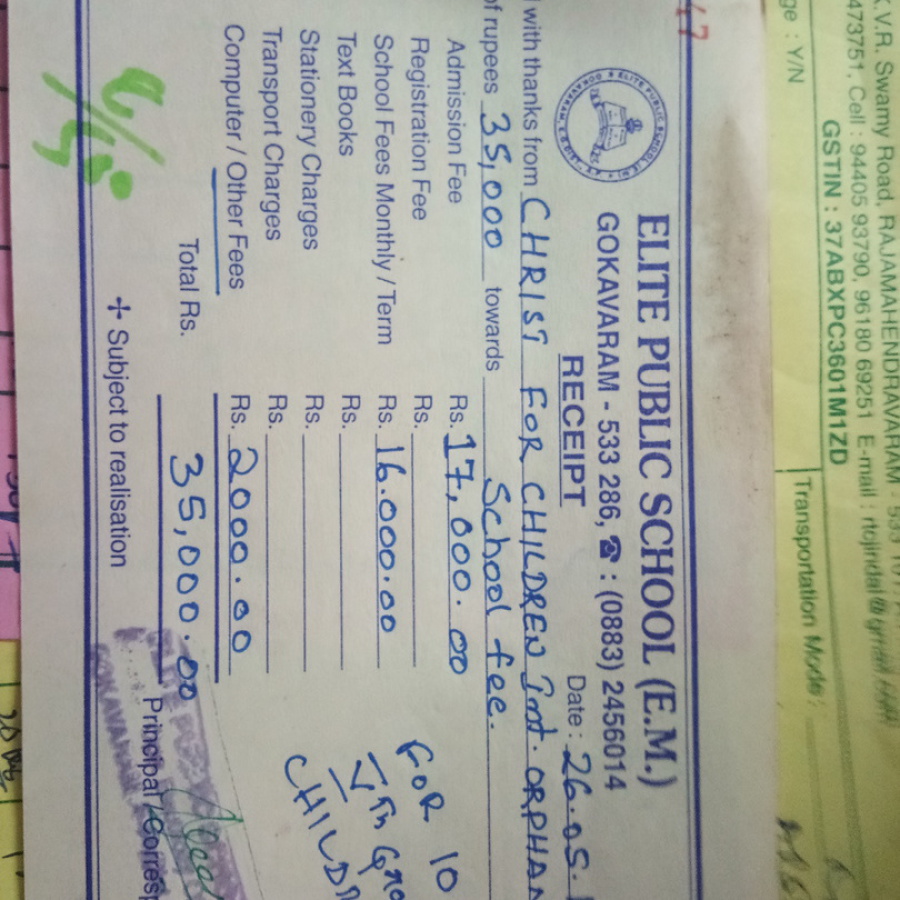 47
ELITE PUBLIC SCHOOL (E.M.)
GOKAVARAM - 533 286, ☎ : (0883) 2456014
RECEIPT
Date : 26.05.
with thanks from CHRIST FOR CHILDREN Int. ORPHAN
of rupees 35,000 towards School fee.
Admission Fee Rs. 17,000.00
Registration Fee Rs.
School Fees Monthly / Term Rs. 16.000.00
Text Books Rs.
Stationery Charges Rs.
Transport Charges Rs.
Computer / Other Fees Rs. 2000.00
Total Rs. 35,000.00
FOR 10
CHILD
Principal / Corresp
✢ Subject to realisation
K.V.R. Swamy Road, RAJAMAHENDRAVARAM - 533
473751, Cell : 94405 93790, 96180 69251 E-mail : rtojindal@gmail
GSTIN : 37ABXPC3601M1ZD
ge : Y/N
Transportation Mode :